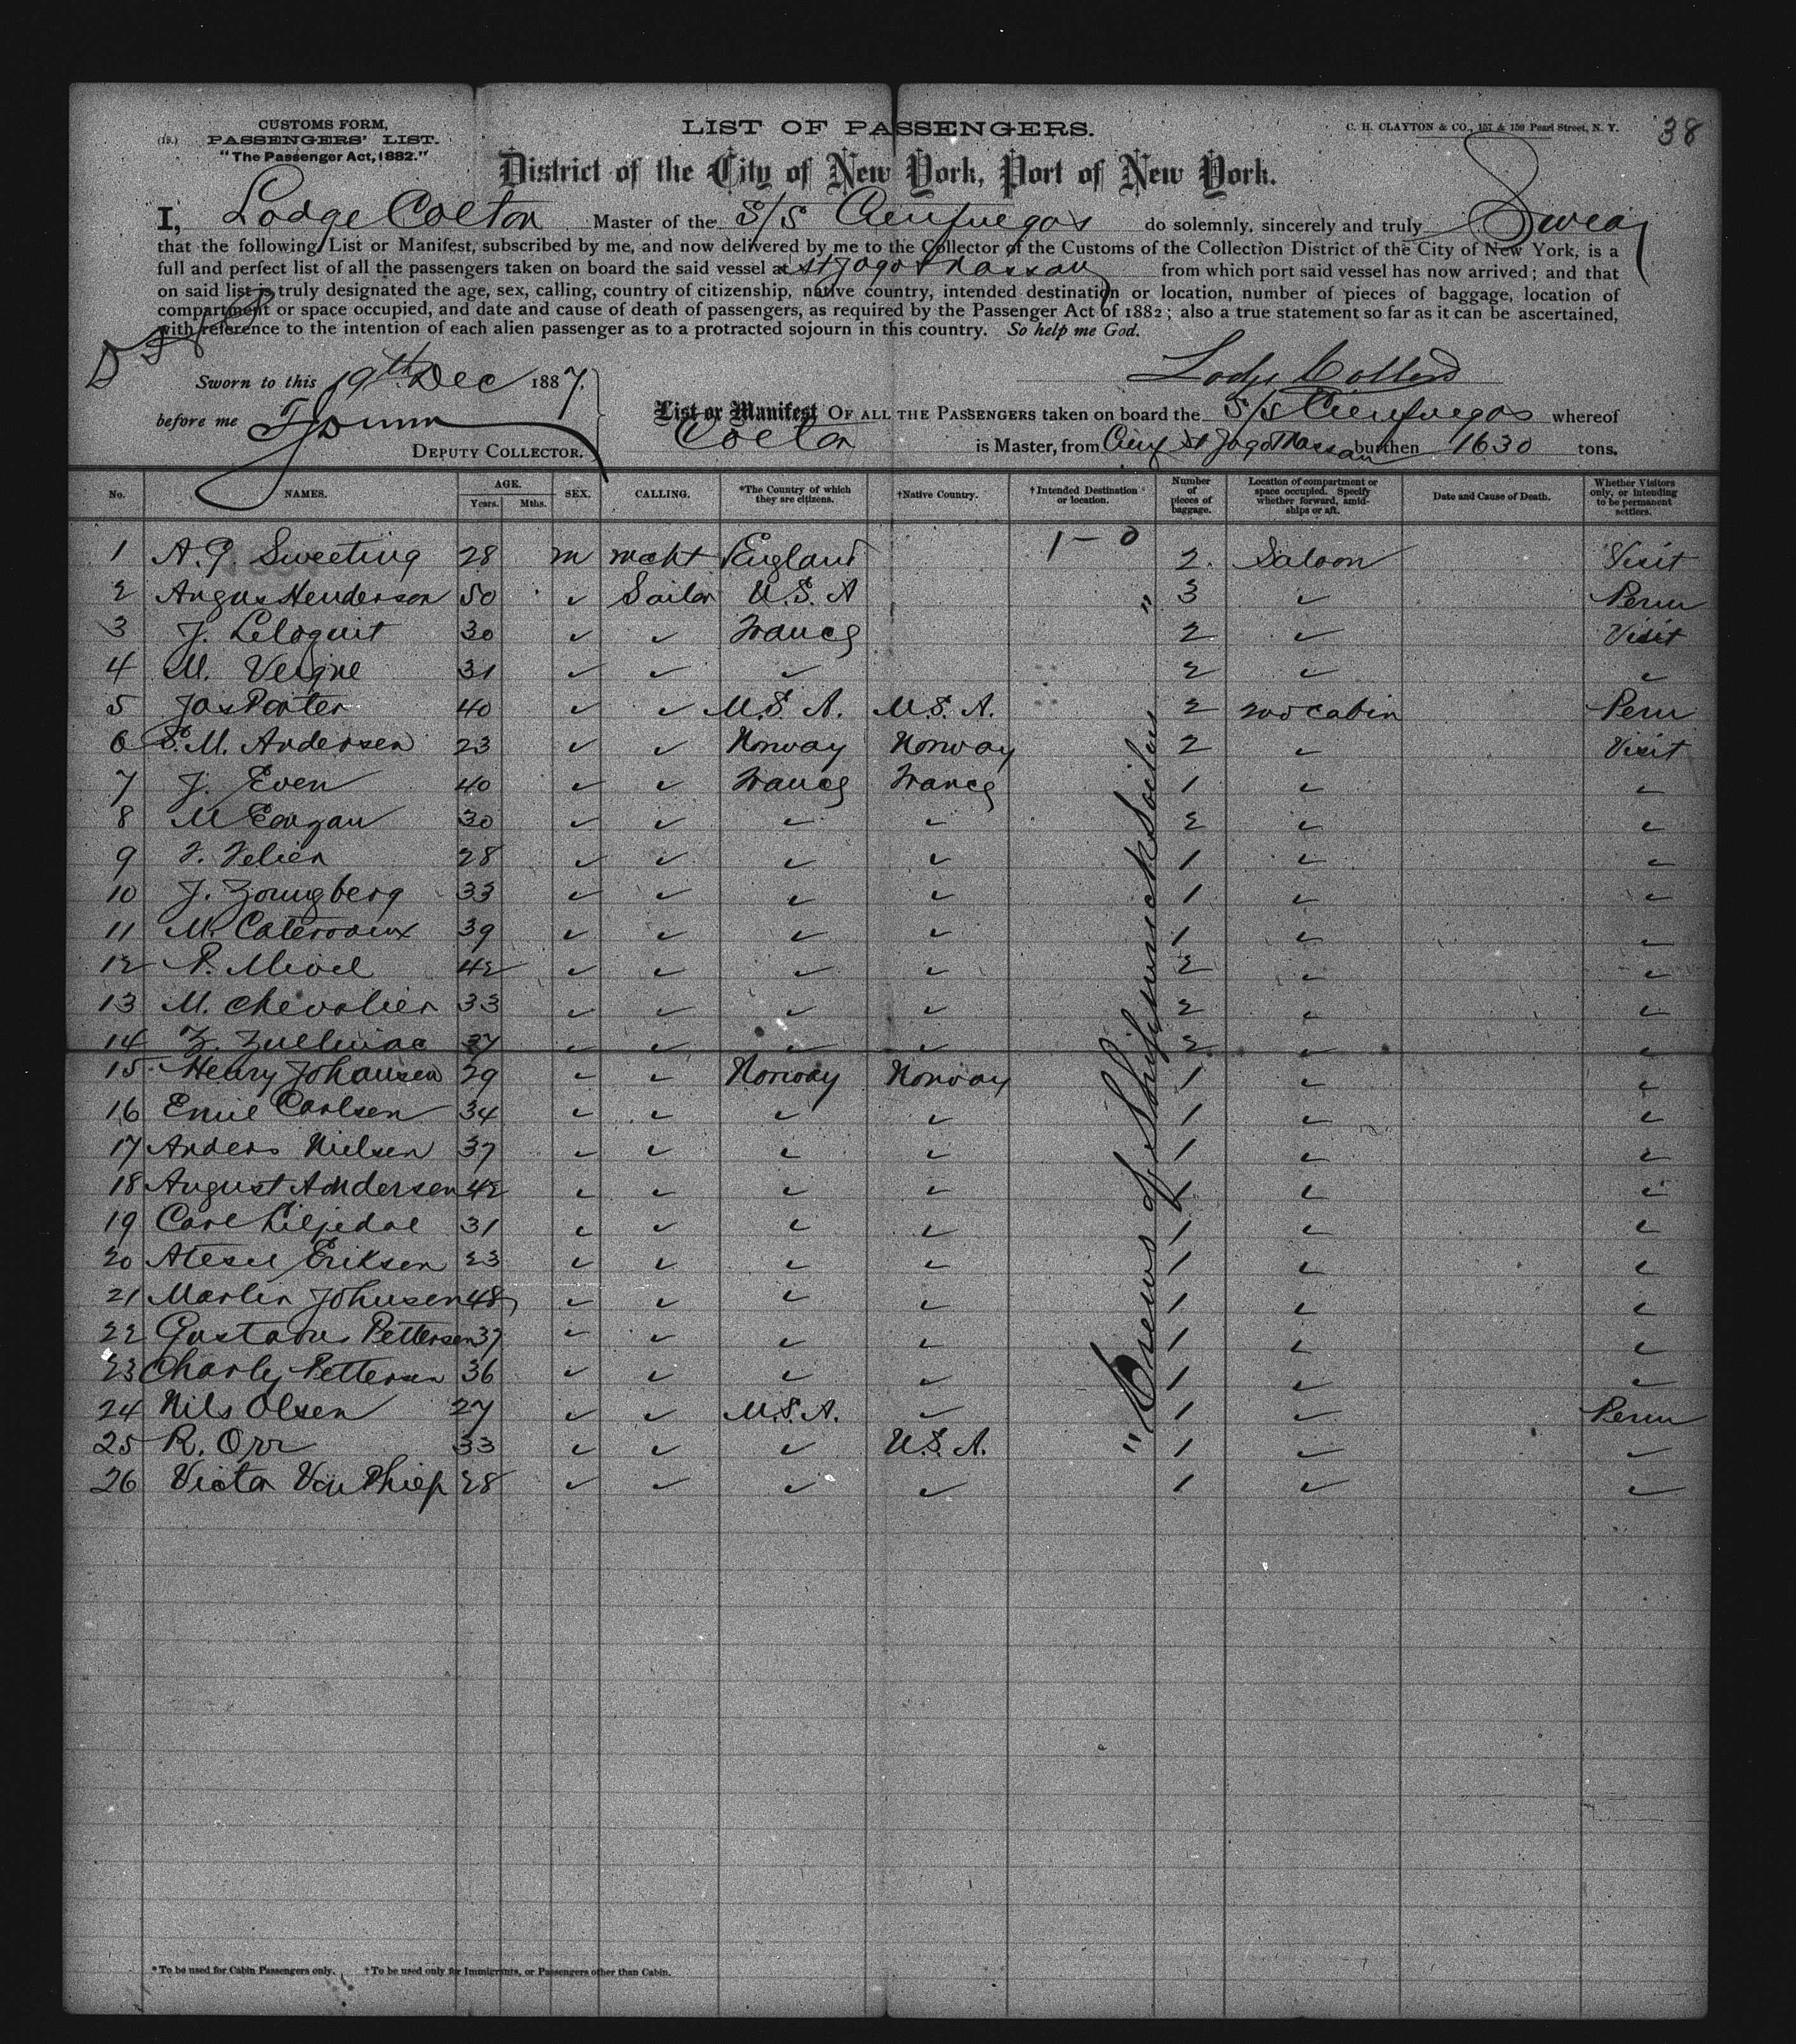 CUSTOMS FORM,
(15.) PASSENGERS' LIST.
"The Passenger Act, 1882."
LIST OF PASSENGERS.
C. H. CLAYTON & CO., 157 & 159 Pearl Street, N. Y.
38
District of the City of New York, Port of New York.
I, Lodge Colton Master of the S/S Cienfuegos do solemnly, sincerely and truly Swear
that the following List or Manifest, subscribed by me, and now delivered by me to the Collector of the Customs of the Collection District of the City of New York, is a
full and perfect list of all the passengers taken on board the said vessel at St Jago & Nassau from which port said vessel has now arrived; and that
on said list is truly designated the age, sex, calling, country of citizenship, native country, intended destination or location, number of pieces of baggage, location of
compartment or space occupied, and date and cause of death of passengers, as required by the Passenger Act of 1882; also a true statement so far as it can be ascertained,
with reference to the intention of each alien passenger as to a protracted sojourn in this country. So help me God.
Sworn to this 19th Dec 1887.
before me
DEPUTY COLLECTOR.
Lodge Colton
List or Manifest OF ALL THE PASSENGERS taken on board the S/S Cienfuegos whereof
Colton is Master, from Cienf St Jago Nassau burthen 1630 tons.
No. NAMES. AGE. Years. Mths. SEX. CALLING. *The Country of which they are citizens. †Native Country. †Intended Destination or location. Number of pieces of baggage. Location of compartment or space occupied. Specify whether forward, amidships or aft. Date and Cause of Death. Whether Visitors only, or intending to be permanent settlers.
1 - 0
1 A. G. Sweeting 28 m mcht England 2. Saloon Visit
2 Angus Henderson 50 ✓ Sailor U.S.A " 3 ✓ Perm
3 J. Leloquit 30 ✓ ✓ France 2 ✓ Visit
4 M. Veigne 31 ✓ ✓ ✓ 2 ✓ ✓
5 Jas Porter 40 ✓ ✓ U.S.A. U.S.A. 2 2nd cabin Perm
6 E. M. Andersen 23 ✓ ✓ Norway Norway 2 ✓ Visit
7 J. Even 40 ✓ ✓ France France 1 ✓ ✓
8 M 30 ✓ ✓ ✓ ✓ 2 ✓ ✓
9 F. Felier 28 ✓ ✓ ✓ ✓ 1 ✓ ✓
10 J. Youngberg 33 ✓ ✓ ✓ ✓ 1 ✓ ✓
11 M. 39 ✓ ✓ ✓ ✓ 1 ✓ ✓
12 P. 42 ✓ ✓ ✓ ✓ 2 ✓ ✓
13 M. Chevalier 33 ✓ ✓ ✓ ✓ 2 ✓ ✓
14 37 ✓ ✓ ✓ ✓ 2 ✓ ✓
15 Henry Johansen 29 ✓ ✓ Norway Norway 1 ✓ ✓
16 Emil Carlsen 34 ✓ ✓ ✓ ✓ 1 ✓ ✓
17 Anders Nielsen 37 ✓ ✓ ✓ ✓ 1 ✓ ✓
18 August Andersen 42 ✓ ✓ ✓ ✓ 1 ✓ ✓
19 Carl Liljedal 31 ✓ ✓ ✓ ✓ 1 ✓ ✓
20 Eriksen 23 ✓ ✓ ✓ ✓ 1 ✓ ✓
21 Martin Johnsen 48 ✓ ✓ ✓ ✓ 1 ✓ ✓
22 Gustave Pettersen 37 ✓ ✓ ✓ ✓ 1 ✓ ✓
23 Charly Pettersen 36 ✓ ✓ ✓ ✓ 1 ✓ ✓
24 Nils Olsen 27 ✓ ✓ U.S.A. ✓ 1 ✓ Perm
25 R. Orr 33 ✓ ✓ ✓ U.S.A. 1 ✓ ✓
26 Victor 28 ✓ ✓ ✓ ✓ 1 ✓ ✓
" Crews of Shipwrecked Sailors
*To be used for Cabin Passengers only. †To be used only for Immigrants, or Passengers other than Cabin.